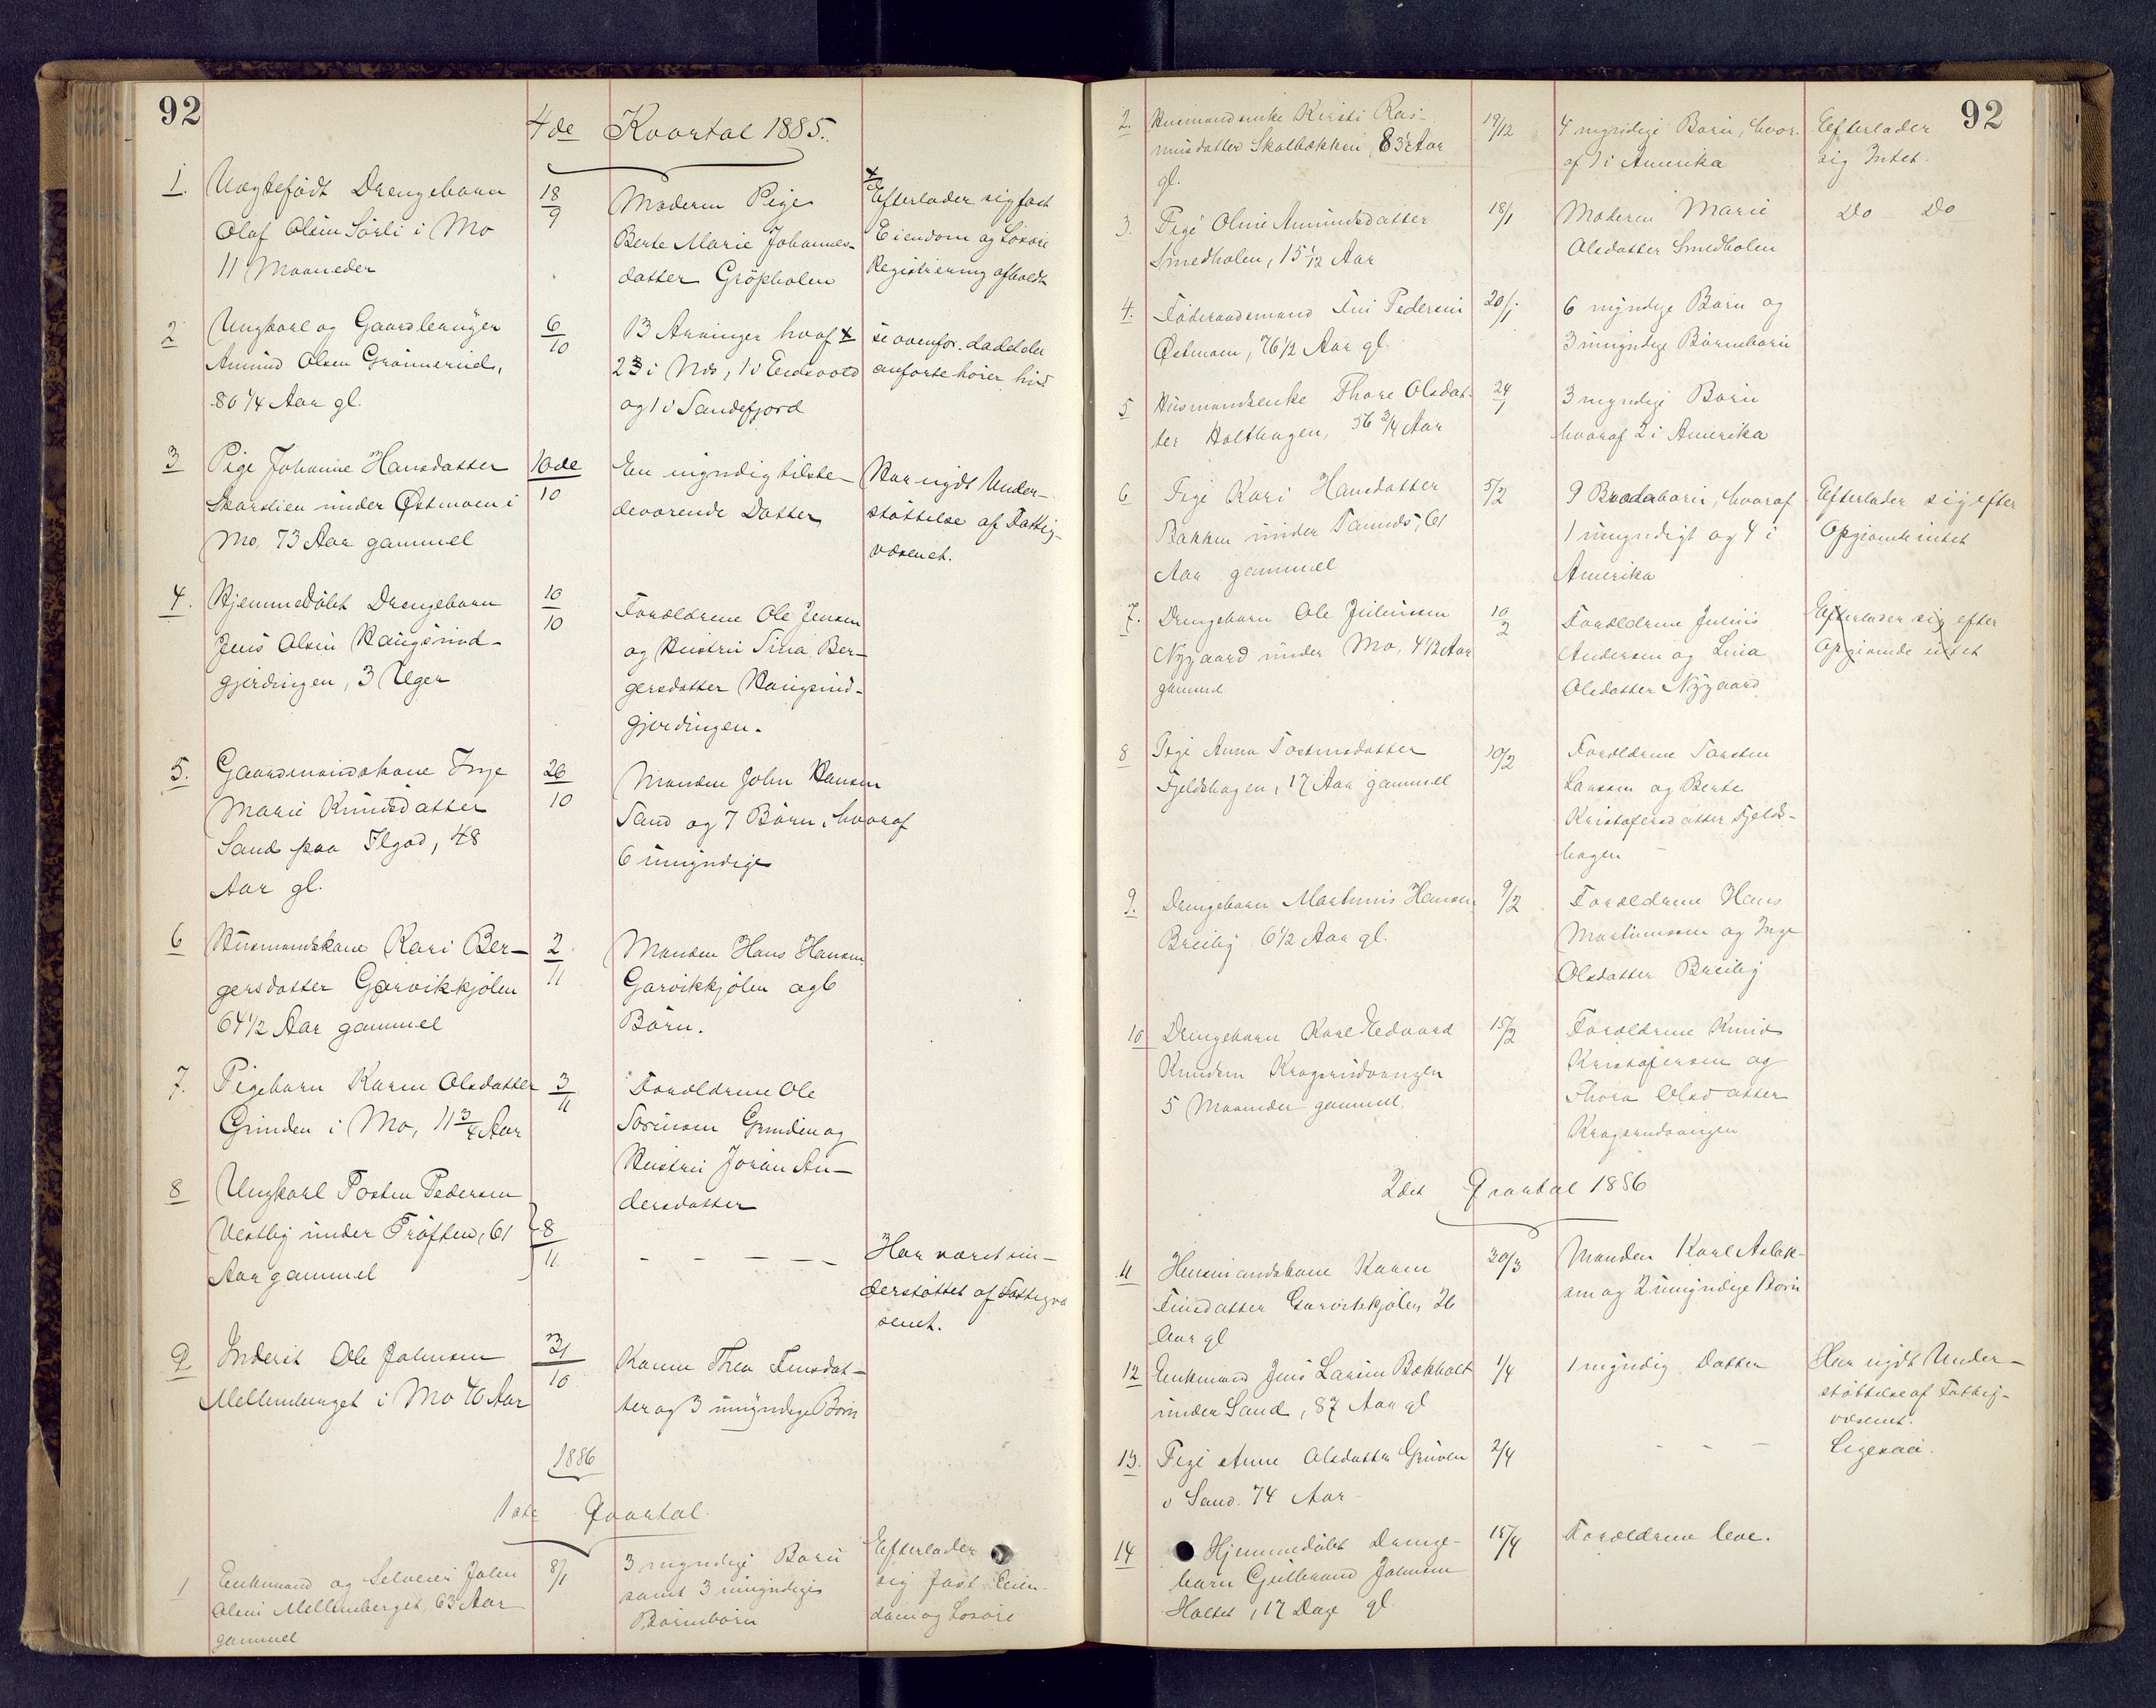 92
4de Kvartal 1885.
1. Uægtefødt Drengebarn
Olaf Olsen Sörli i Mo
11 Maaneder
18/9
Moderen Pige
Berte Marie Johannes-
datter Gröpholen
Efterlader sig fast
Eiendom og Lösöre
Registrering afholdt
2 Ungkarl og Gaardbruger
Amund Olsen Grönnerud,
80 1/4 Aar gl.
6/10
13 Arvinger hvoraf
23 i Nds, 1 i Eidsvold
og 1 i Sandefjord
se ovenfor. Ladet der
anførte hører hid
3 Pige Johanne Hansdatter
Skarslien under Østmoen i
Mo, 73 Aar gammel
10de/10
En myndig tilste-
deværende Datter
Har nydt Under-
støttelse af Fattig-
væsenet.
4. Hjemmedöbt Drengebarn
Jens Olsen Haugsrud-
gjerdingen, 3 Uger
10/10
Forældrene Ole Jensen
og Hustru Sina Ber-
gersdatter Haugsrud-
gjerdingen.
5. Gaardmandskone Inge
Marie Knudsdatter
Sand paa Ilgod, 48
Aar gl.
26/10
Manden John Hansen
Sand og 7 Börn, hvoraf
6 umyndige
6 Husmandskone Kari Ber-
gersdatter Garvikkjölen
64 1/2 Aar gammel
2/11
Manden Hans Hansen
Garvikkjölen og 6
Börn.
7. Pigebarn Karen Olsdatter
Grinden i Mo, 11 3/4 Aar
3/11
Forældrene Ole
Sörensen Grinden og
Hustru Joran An-
dersdatter
8 Ungkarl Posten Pedersen
Vestby under Tröften, 61
Aar gammel
8/11
- - - - -
Har været un-
derstøttet af Fattigvæ
senet.
9 Inderst Ole Johnsen
Mellemberget i Mo 40 Aar
31/10
Konen Thea Finsdat-
ter og 3 umyndige Börn
1886
1ste Qvartal
1 Enkemand og Selveier John
Olsen Mellemberget, 63 Aar
gammel
8/1
3 myndige Börn
samt 3 umyndige
Börnebörn
Efterlader
sig fast Eien-
dom og Lösöre
92
2. Husmandsenke Kersti Ras-
musdatter Skolbækken, 83 1/2 Aar
gl.
19/12
4 myndige Börn, hvor-
af 1 i Amerika
Efterlader
sig Intet.
3. Pige Oline Amundsdatter
Smedholen, 15 1/12 Aar
18/1
Moderen Marie
Olsdatter Smedholen
Do Do
4. Föderaadsmand Fin Pedersen
Østmoen, 76 1/2 Aar gl.
20/1
6 myndige Börn og
3 umyndige Börnebörn
5 Husmandsenke Thore Olsdat-
ter Holthagen, 56 3/4 Aar
24/1
3 myndige Börn
hvoraf 2 i Amerika
6 Pige Kari Hansdatter
Bakken under Taunds, 61
Aar gammel
5/2
9 Broderbörn, hvoraf
1 umyndigt og 4 i
Amerika
Efterlader sig efter
Opgivende intet
7. Drengebarn Ole Juliussen
Nygaard under Mo, 4 1/2 Aar
gammel
10/2
Forældrene Julius
Andersen og Lina
Olsdatter Nygaard
Efterlader sig efter
Opgivende intet
8 Pige Anna Tostensdatter
Fjeldshagen, 17 Aar gammel
10/2
Forældrene Torsten
Larssen og Berte
Kristofersdatter Fjelds-
hagen
9. Drengebarn Martinius Hansen
Breiby 6 1/2 Aar gl.
9/2
Forældrene Hans
Martinussen og Inge
Olsdatter Breiby
10 Drengebarn Karl Edvard
Knudsen Kragsrudvangen
5 Maaneder gammel
15/2
Forældrene Knud
Kristofersen og
Thora Olsdatter
Kragsrudvangen
2det Qvartal 1886
11 Husmandskone Karen
Finsdatter Garvikkjölen 26
Aar gl
30/3
Manden Karl Aslak-
sen og 2 umyndige Börn
12 Enkemand Jens Larsen Bokholt
under Sand, 87 Aar gl
1/4
1 myndig Datter
Har nydt Under-
støttelse af Fattig-
væsenet.
13. Pige Anne Olsdatter Gruven
u Sand. 74 Aar
2/4
- - -
Ligesaa.
14 Hjemmedöbt Drenge-
barn Gulbrand Johnsen
Holtet, 17 Dage gl.
18/4
Forældrene leve.